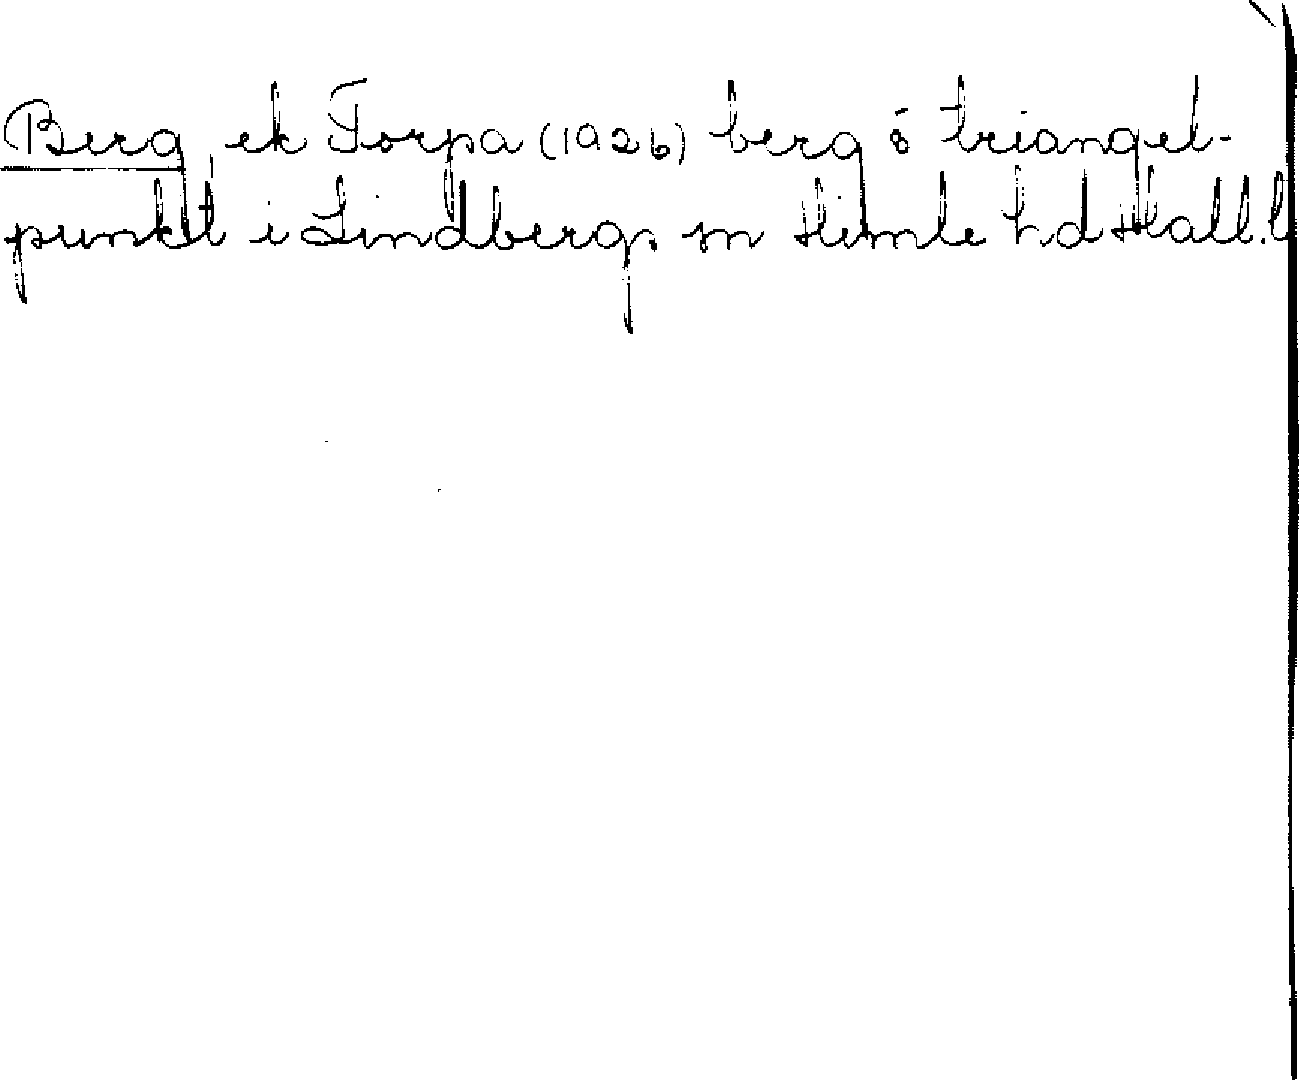 Berg, ek Torpa (1926) berg ö triangel-
punkt i Lindbergs sn Himle hd Hall. l